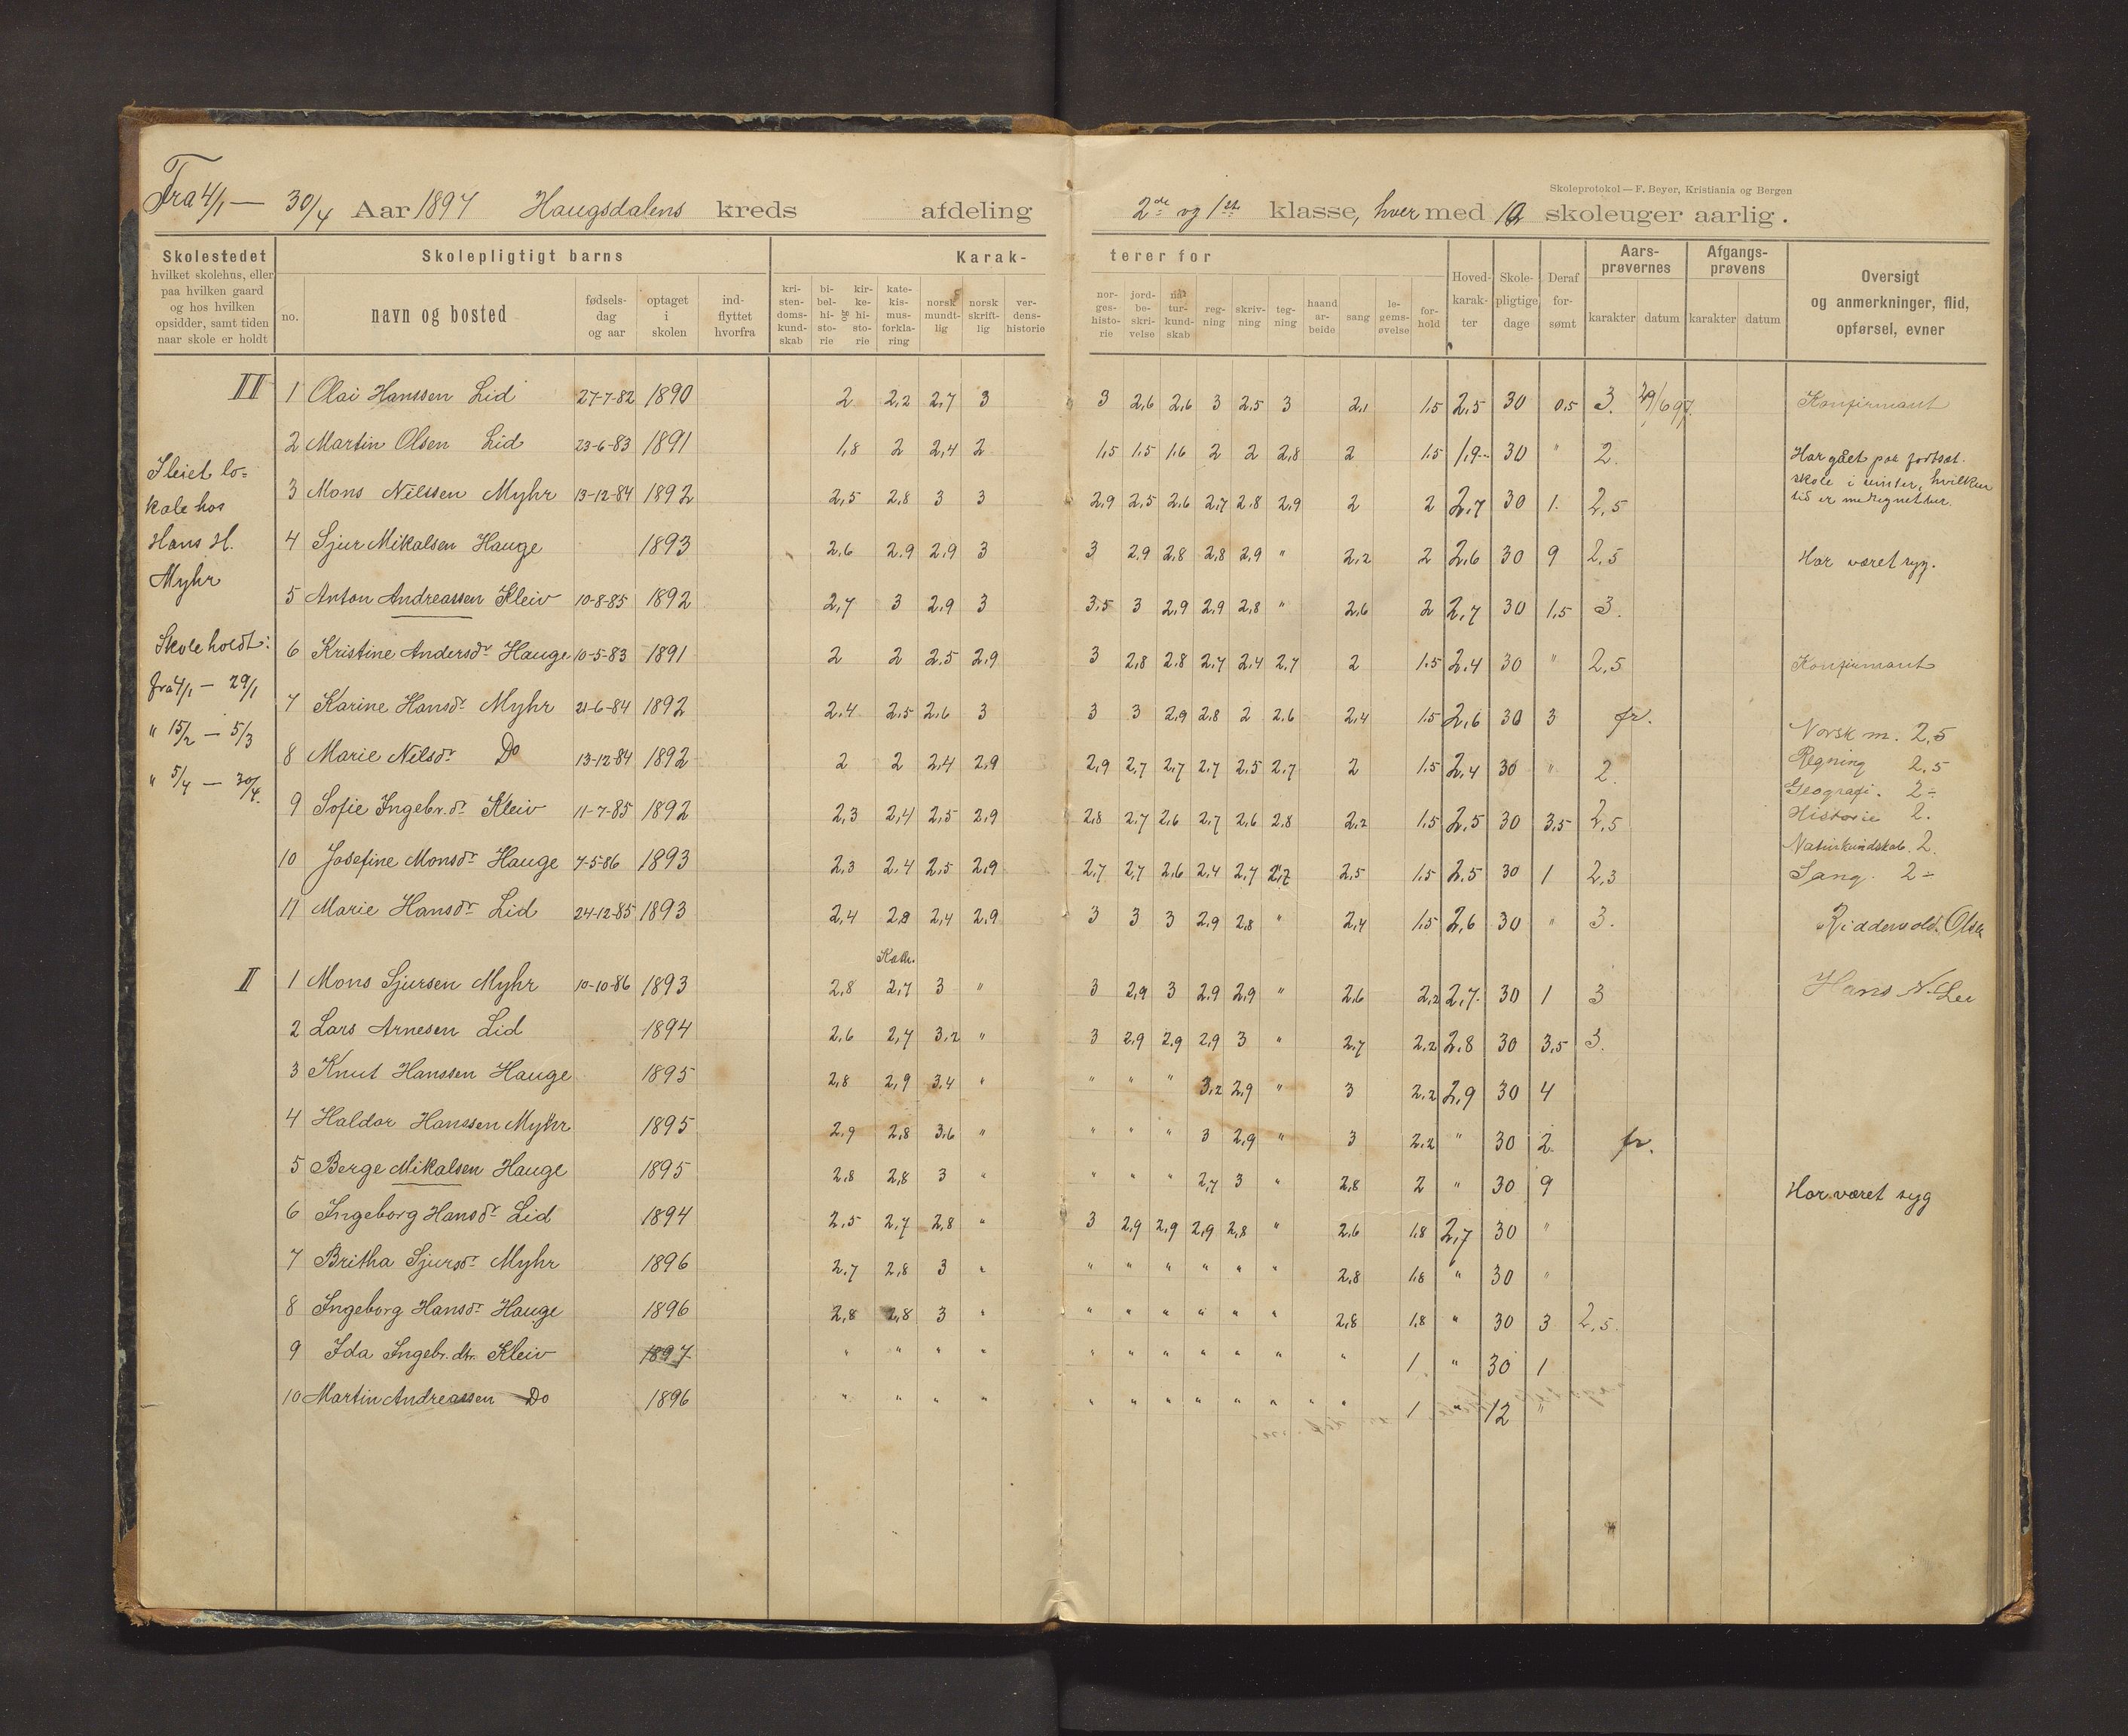 Skoleprotokol — F. Beyer, Kristiania og Bergen
Fra 4/1 — 30/4 Aar 1897 Haugsdalens kreds afdeling 2de og 1ste klasse, hver med 12 skoleuger aarlig.
Skolestedet
hvilket skolehus, eller
paa hvilken gaard
og hos hvilken
opsidder, samt tiden
naar skole er holdt
Skolepligtigt barns
no.
navn og bosted
fødsels-
dag
og aar
optaget
i
skolen
ind-
flyttet
hvorfra
Karak-
kri-
sten-
doms-
kund-
skab
bi-
bel-
hi-
sto-
rie
og
kir-
ke-
hi-
sto-
rie
kate-
kis-
mus-
forkla-
ring
norsk
mundt-
lig
norsk
skrift-
lig
ver-
dens-
historie
terer for
nor-
ges-
histo-
rie
jord-
be-
skri-
velse
na-
tur-
kund-
skab
reg-
ning
skriv-
ning
teg-
ning
haand
ar-
beide
sang
le-
gems-
øvelse
for-
hold
Hoved-
karak-
ter
Skole-
pligtige
dage
Deraf
for-
sømt
Aars-
prøvernes
karakter datum
Afgangs-
prøvens
karakter datum
Oversigt
og anmerkninger, flid,
opførsel, evner
II 1 Olai Hanssen Lid 27-7-82 1890 2 2,2 2,7 3 3 2,6 2,6 3 2,5 3 2,1 1,5 2,5 30 0,5 3. 29/6 97. Konfirmant
2 Martin Olsen Lid 23-6-83 1891 1,8 2 2,4 2 1,5 1,5 1,6 2 2 2,8 2 1,5 1,9 30 " 2.
3 Mons Nilssen Myhr 13-12-84 1892 2,5 2,8 3 3 2,9 2,5 2,6 2,7 2,8 2,9 2 2 2,7 30 1. 2,5
4 Sjur Mikalsen Hauge 1893 2,6 2,9 2,9 3 3 2,9 2,8 2,8 2,9 " 2,2 2 2,6 30 9 2,5 Har været syg.
5 Anton Andreassen Kleiv 10-8-85 1892 2,7 3 2,9 3 3,5 3 2,9 2,9 2,8 " 2,6 2 2,7 30 1,5 3.
6 Kristine Andersdr Hauge 10-5-83 1891 2 2 2,5 2,9 3 2,8 2,8 2,7 2,4 2,7 2 1,5 2,4 30 " 2,5 Konfirmant
7 Karine Hansdr Myhr 21-6-84 1892 2,4 2,5 2,6 3 3 3 2,9 2,8 2 2,6 2,4 1,5 2,6 30 3 fr.
8 Marie Nilsdr Do 13-12-84 1892 2 2 2,4 2,9 2,9 2,7 2,7 2,7 2,5 2,7 2 1,5 2,4 30 " 2.
9 Sofie Ingebr.dr Kleiv 11-7-85 1892 2,3 2,4 2,5 2,9 2,8 2,7 2,6 2,7 2,6 2,8 2,2 1,5 2,5 30 3,5 2,5
10 Josefine Monsdr Hauge 7-5-86 1893 2,3 2,4 2,5 2,9 2,7 2,7 2,6 2,4 2,7 2,7 2,5 1,5 2,5 30 1 2,3
11 Marie Hansdr Lid 24-12-85 1893 2,4 2,9 2,4 2,9 3 3 3 2,9 2,8 " 2,4 1,5 2,6 30 " 3.
Har gået paa fortsat.
skole i vinter, hvilken
tid er medregnet her.
Norsk m. 2,5
Regning 2,5
Geografi. 2÷
Historie 2.
Naturkundskab. 2.
Sang. 2÷
Riddervold. Olsen
Hans N. Lee
I leiet lo-
kale hos
Hans H.
Myhr
Skole holdt:
fra 4/1 — 29/1
" 15/2 — 5/3
" 5/4 — 30/4.
Kate.
I 1 Mons Sjursen Myhr 10-10-86 1893 2,8 2,7 3 " 3 2,9 3 2,9 2,9 " 2,6 2,2 2,7. 30 1 3
2 Lars Arnesen Lid 1894 2,6 2,7 3,2 " 3 2,9 2,9 2,9 3 " 2,7 2,2 2,8 30 3,5 3.
3 Knut Hanssen Hauge 1895 2,8 2,9 3,4 " " " " 3,2 2,9 " 3 2,2 2,9 30 4
4 Haldor Hanssen Myhr 1895 2,9 2,8 3,6 " " " " 3 2,9 " 3 2,2 " 30 2 fr.
5 Berge Mikalsen Hauge 1895 2,8 2,8 3 " " " " 2,7 3 " 2,8 2 " 30 9 Har været syg
6 Ingeborg Hansdr Lid 1894 2,5 2,7 2,8 " 3 2,9 2,9 2,9 2,8 " 2,6 1,8 2,7 30 "
7 Britha Sjursdr Myhr 1896 2,7 2,8 3 " " " " " " " 2,8 1,8 " 30 "
8 Ingeborg Hansdr Hauge 1896 2,8 2,8 3 " " " " " " " 2,8 1,8 " 30 3 2,5.
9 Ida Ingebr.dtr. Kleiv 1897 " " " " " " " " " " " 1 " 30 1
10 Martin Andreassen Do 1896 " " " " " " " " " " " " 1 " 12 "